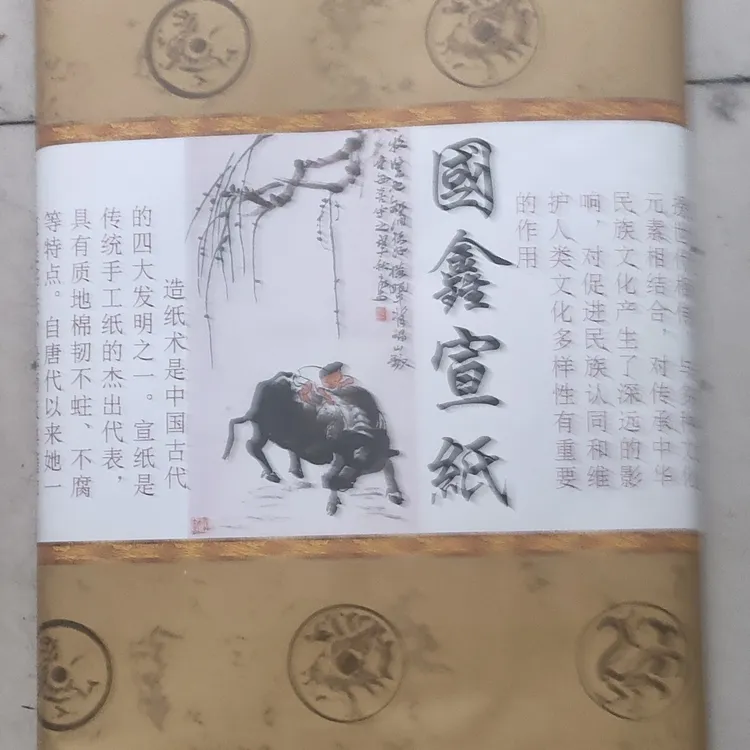 國鑫宣紙
造纸术是中国古代
的四大发明之一。宣纸是
传统手工纸的杰出代表，
具有质地棉韧不蛀、不腐
等特点。自唐代以来她一
元素相结合，对传承中华
民族文化产生了深远的影
响，对促进民族认同和维
护人类文化多样性有重要
的作用